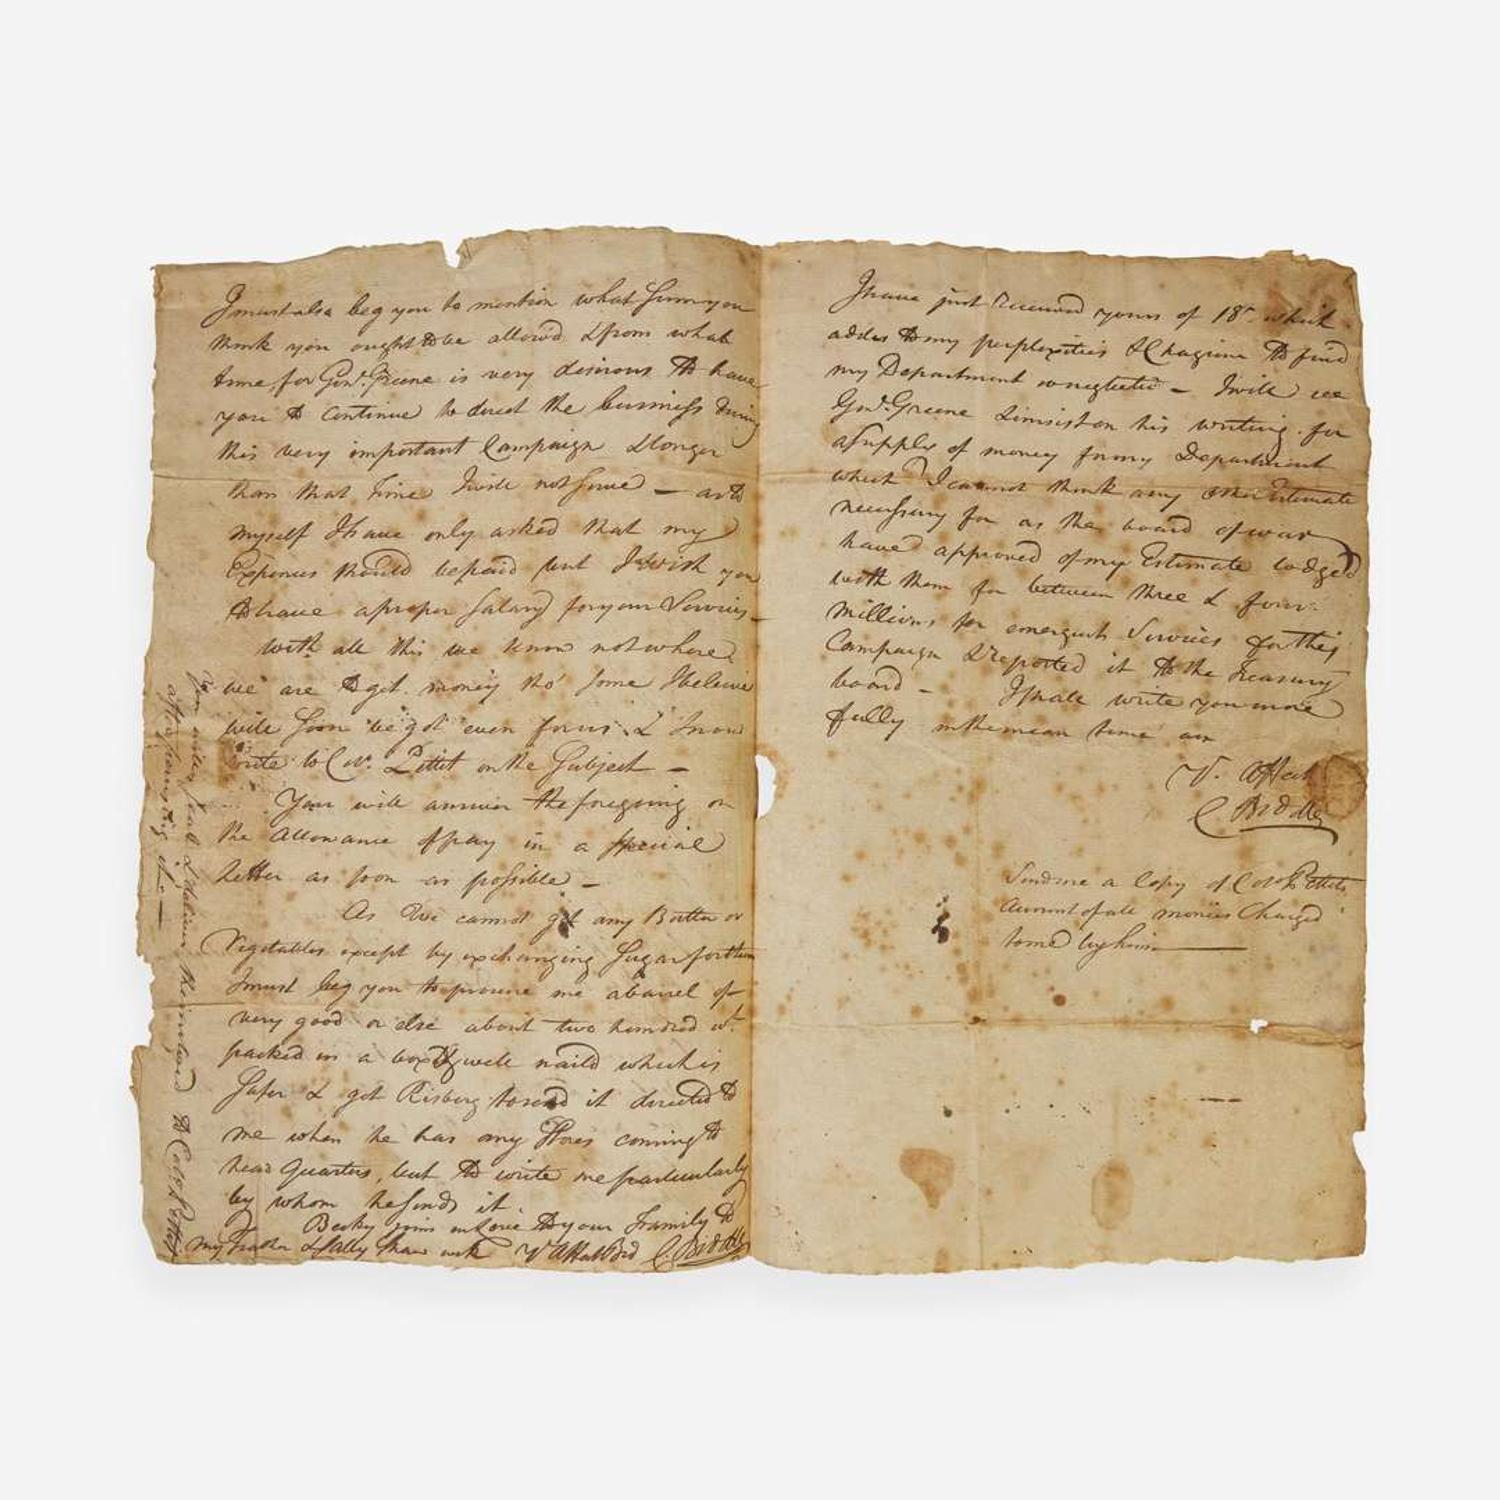 I must also beg you to mention what Sum you
think you ought to be allow'd & from what
time, for Genl. Greene is very desirous to have
you to continue to direct the business during
this very important Campaign & longer
than that time I will not serve — as to
myself I have only asked that my
Expences should be paid but I wish you
to have a proper Salary for your Services —
with all this we know not where
we are to get money tho' some I believe
will soon be got even for us & I now
write to Col. Pettit on the Subject —
You will answer the foregoing on
the allowance of pay in a special
Letter as soon as possible —
As we cannot get any Butter or
Vegetables except by exchanging Sugar for them
I must beg you to procure me a barrel of
very good or else about two hundred wt.
packed in a box well naild which is
safer & get Risberg to send it directed to
me when he has any Stores coming to
head Quarters, but to write me particularly
by whom he sends it.
Becky joins in Love to your Family to
my & Sally Shaw with Yr. Affect. C. Biddle
You will Seal & deliver the inclosed to Col. Pettit
after
I have just received yours of 18th which
adds to my perplexities & Chagrine to find
my Department so neglected — I will see
Genl. Greene & insist on his writing for
a Supply of money for my Department
which I cannot think any other Estimate
necessary for as the board of war
have approved of my Estimate lodged
with them for between three & four
millions for emergent Services for this
Campaign & reported it to the Treasury
board — I shall write you more
fully in the mean time am
Yr. Affect.
C Biddle
Send me a Copy of Col. Pettits
Account of all monies Charged
to me by him —